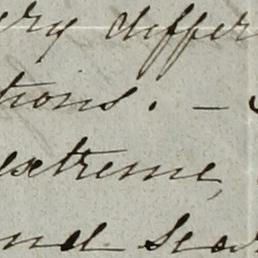 ery differ
tions. –
extreme,
nd sea